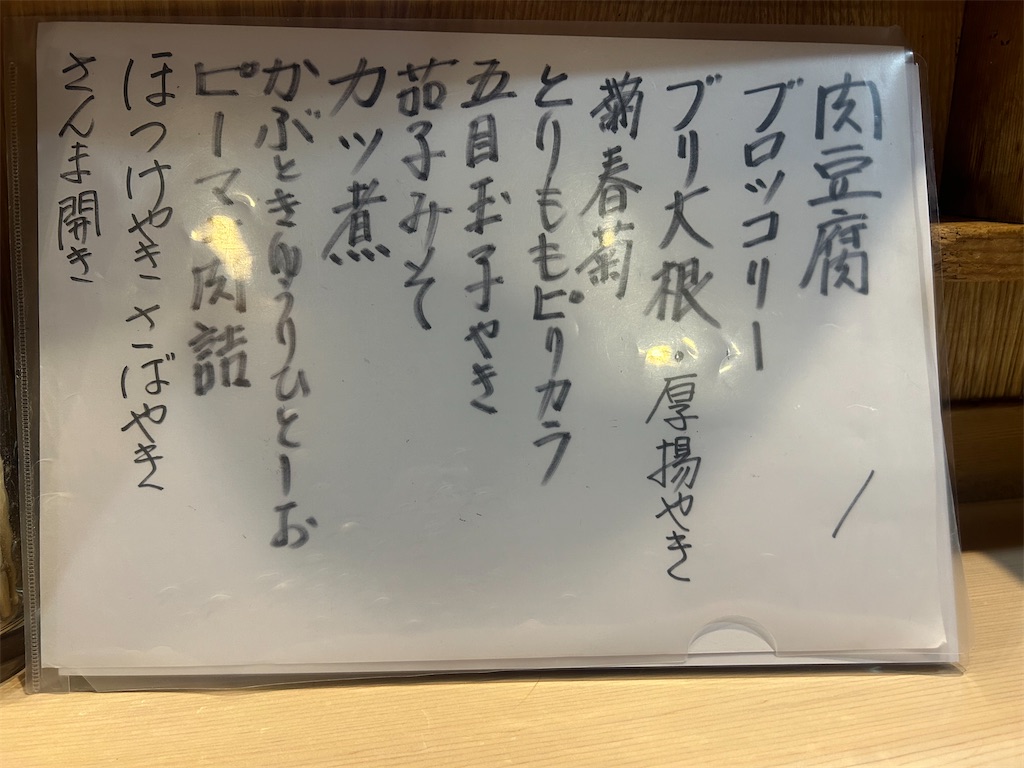 肉豆腐
ブロッコリー
ブリ大根・厚揚やき
春菊
とりももピリカラ
五目玉子やき
茄子みそ
カツ煮
かぶときゅうりひとーお
ピーマン肉詰
ほっけやき さばやき
さんま開き